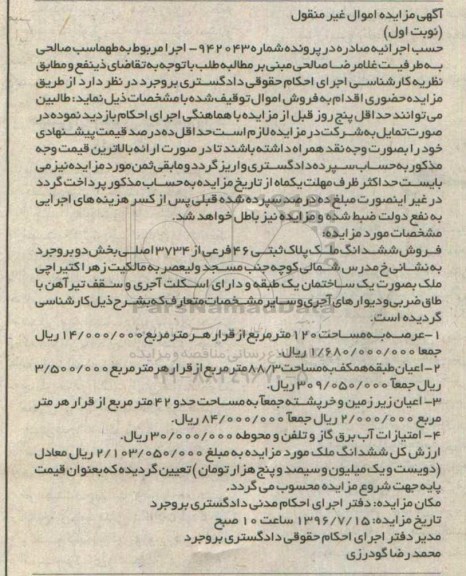 آگهی مزایده اموال غیر منقول
(نوبت اول)
حسب اجرائیه صادره در پرونده شماره ۹۴۲۰۴۳- اجرا مربوط به طهماسب صالحی
به طرفیت غلامرضا صالحی مبنی بر مطالبه طلب با توجه به تقاضای ذینفع و مطابق
نظریه کارشناسی اجرای احکام حقوقی دادگستری بروجرد در نظر دارد از طریق
مزایده حضوری اقدام به فروش اموال توقیف شده با مشخصات ذیل نماید: طالبین
می توانند حداقل پنج روز قبل از مزایده با هماهنگی اجرای احکام بازدید نموده در
صورت تمایل به شرکت در مزایده لازم است حداقل ده درصد قیمت پیشنهادی
خود را بصورت وجه نقد همراه داشته باشند تا در صورت ارائه بالاترین قیمت وجه
مذکور به حساب سپرده دادگستری واریز گردد و مابقی ثمن مورد مزایده نیز می
بایست حداکثر ظرف مهلت یکماه از تاریخ مزایده به حساب مذکور پرداخت گردد
در غیر اینصورت مبلغ ده درصد سپرده شده قبلی پس از کسر هزینه های اجرایی
به نفع دولت ضبط شده و مزایده نیز باطل خواهد شد.
مشخصات مورد مزایده:
فروش ششدانگ ملک پلاک ثبتی ۴۶ فرعی از ۳۷۳۴ اصلی بخش دو بروجرد
به نشانی خ مدرس شمالی کوچه جنب مسجد ولیعصر به مالکیت زهرا کتیراچی
ملک بصورت یک ساختمان یک طبقه و دارای اسکلت آجری و سقف تیرآهن با
طاق ضربی و دیوارهای آجری و سایر مشخصات متعارف که بشرح ذیل کارشناسی
گردیده است.
۱-عرصه به مساحت ۱۲۰ متر مربع از قرار هر متر مربع ۱۴/۰۰۰/۰۰۰ ریال
جمعا ۱/۶۸۰/۰۰۰/۰۰۰ ریال.
۲-اعیان طبقه همکف به مساحت ۸۸/۳ متر مربع از قرار هر متر مربع ۳/۵۰۰/۰۰۰
ریال جمعآ ۳۰۹/۰۵۰/۰۰۰ ریال.
۳- اعیان زیر زمین و خرپشته جمعآ به مساحت حدو ۴۲ متر مربع از قرار هر متر
مربع ۲/۰۰۰/۰۰۰ ریال جمعآ ۸۴/۰۰۰/۰۰۰ ریال.
۴- امتیازات آب برق گاز و تلفن و محوطه ۳۰/۰۰۰/۰۰۰ ریال.
ارزش کل ششدانگ ملک مورد مزایده به مبلغ ۲/۱۰۳/۰۵۰/۰۰۰ ریال معادل
(دویست و یک میلیون و سیصد و پنج هزار تومان) تعیین گردیده که بعنوان قیمت
پایه جهت شروع مزایده محسوب می گردد.
مکان مزایده: دفتر اجرای احکام مدنی دادگستری بروجرد
تاریخ مزایده: ۱۳۹۶/۷/۱۵ ساعت ۱۰ صبح
مدیر دفتر اجرای احکام حقوقی دادگستری بروجرد
محمد رضا گودرزی